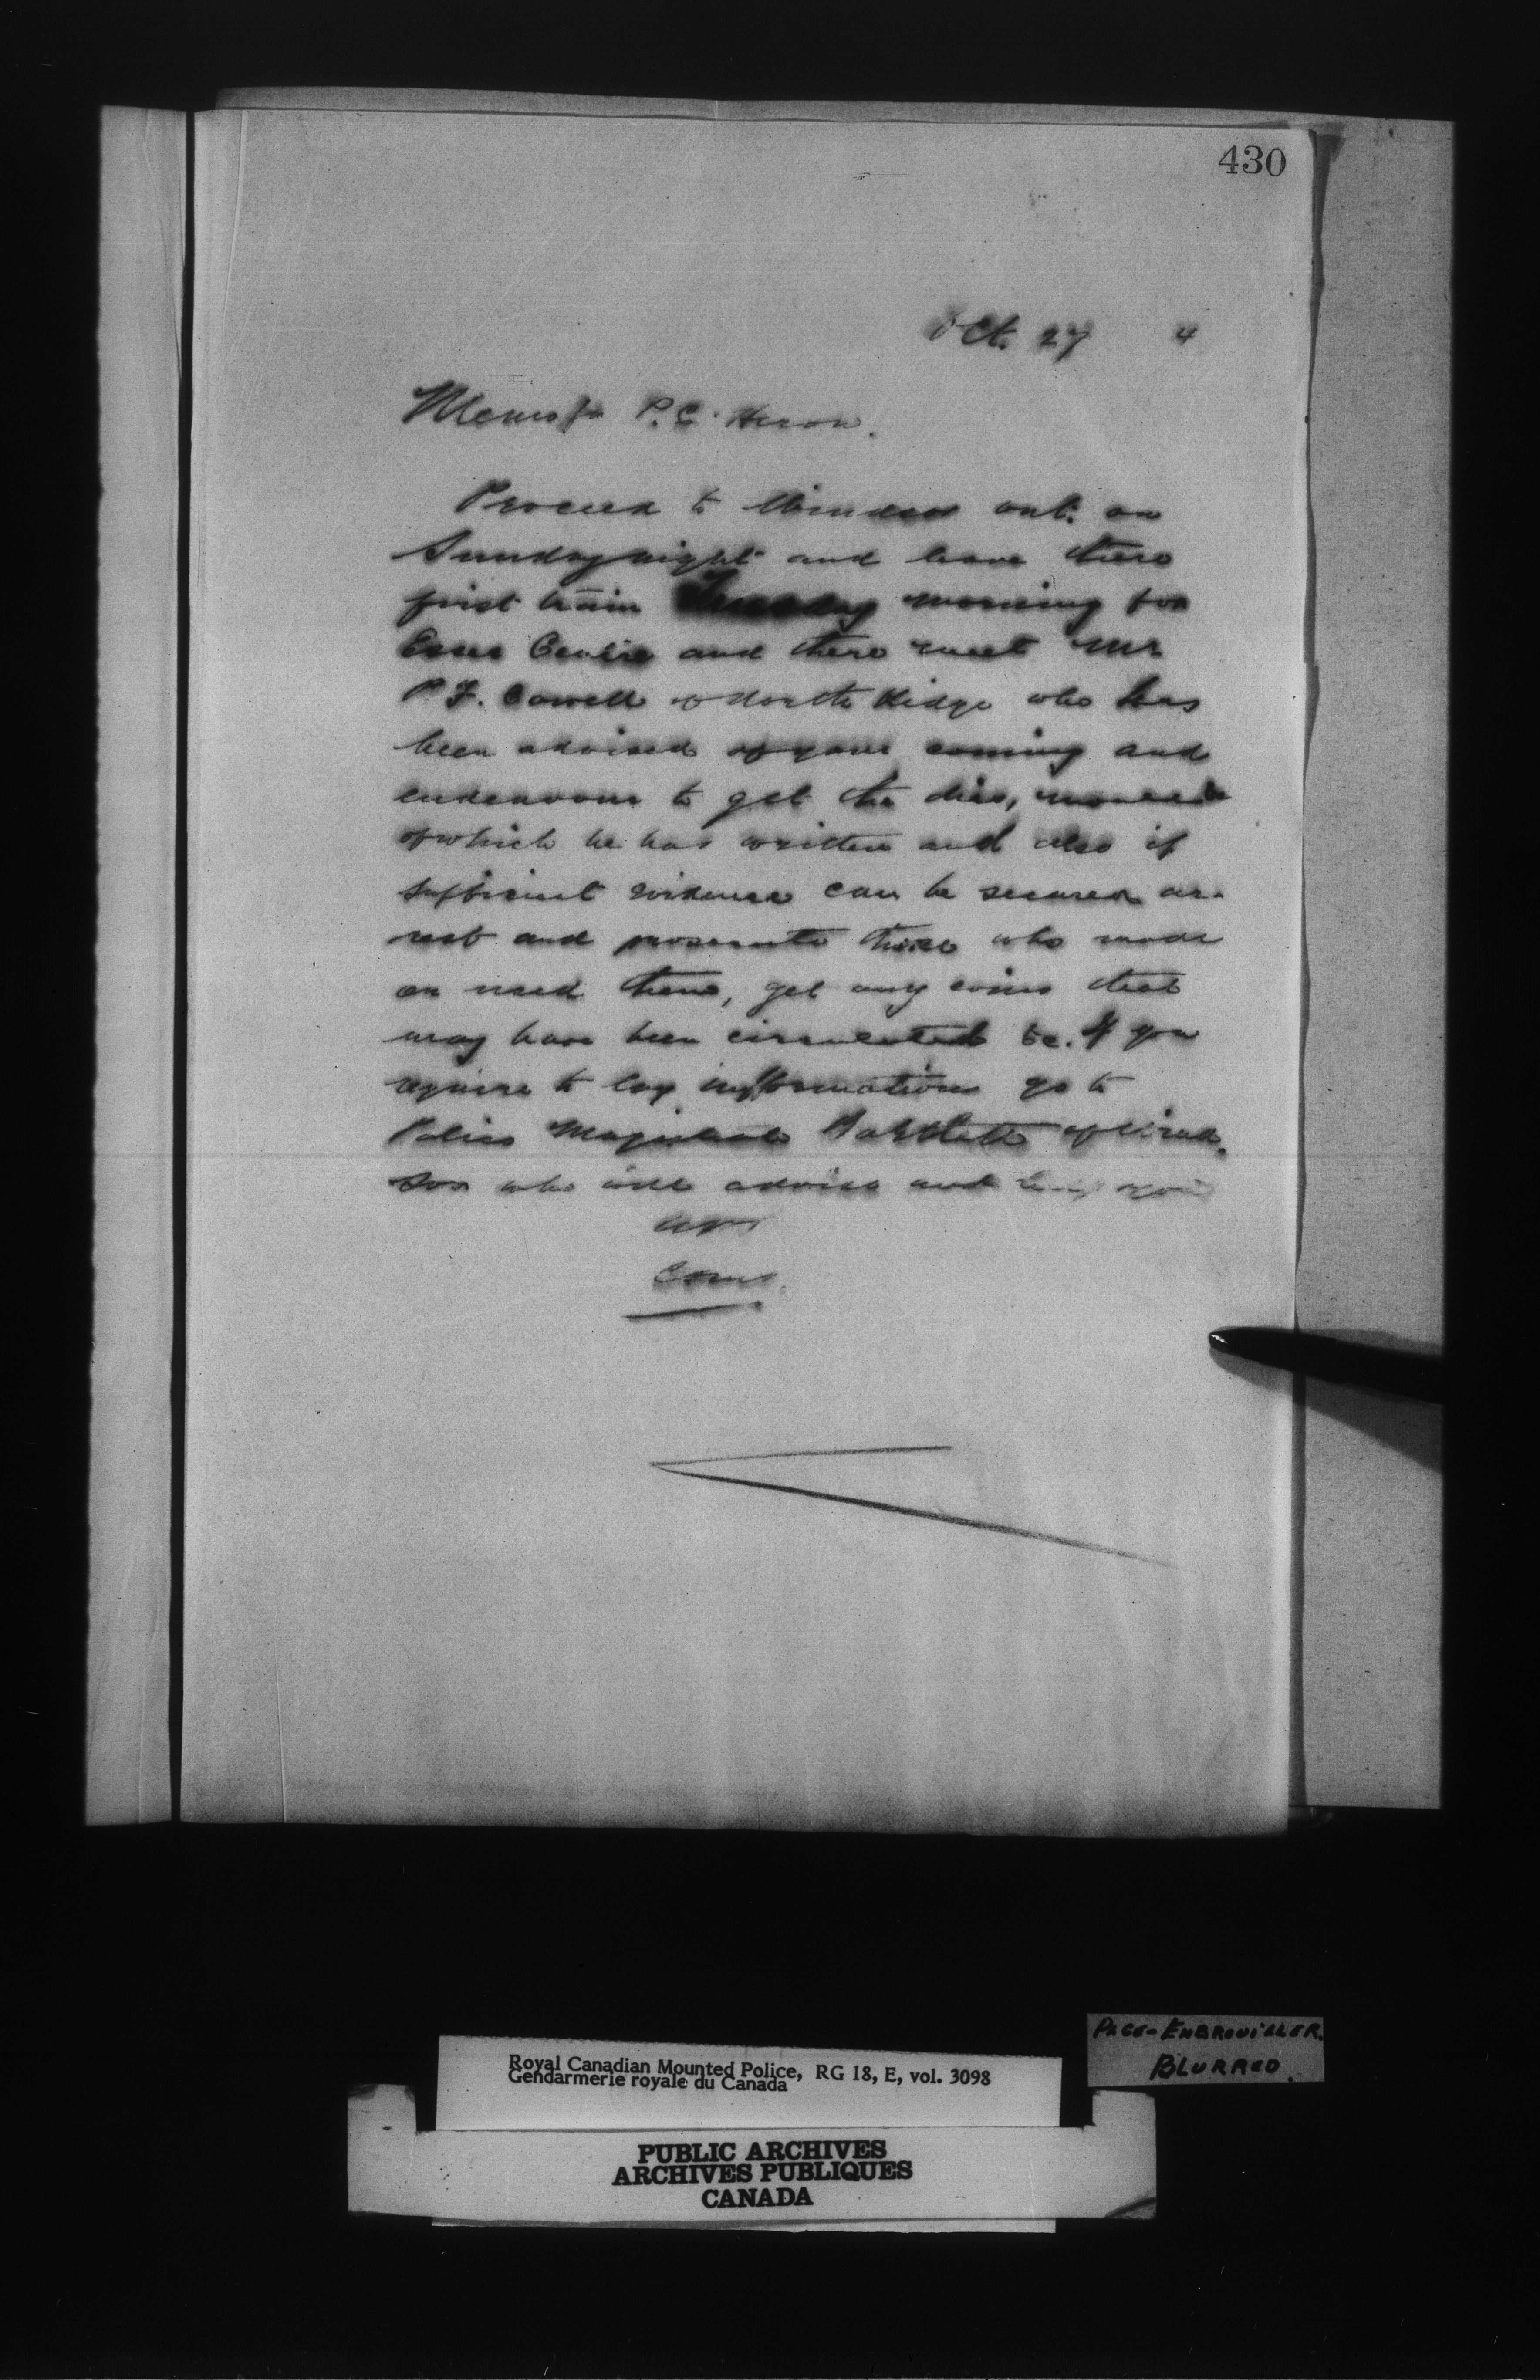 430
Oct. 27 4
Memo for P.C. Heron.
Proceed to Windsor Ont. on
Sunday night and leave there
first train Tuesday morning for
Essex Centre and there meet Mr
P.F. Cowell of North Ridge who has
been advised of your coming and
endeavour to get the dies,
of which he has written and also if
sufficient evidence can be secured ar-
rest and prosecute those who made
or used them, get any coins that
may have been circulated &c. If you
require to lay informations go to
Police Magistrate Bartlett of Wind-
sor who will advise and help you
Com
Royal Canadian Mounted Police, RG 18, E, vol. 3098
Gendarmerie royale du Canada
PAGE-EMBROUILLER.
BLURRED.
PUBLIC ARCHIVES
ARCHIVES PUBLIQUES
CANADA